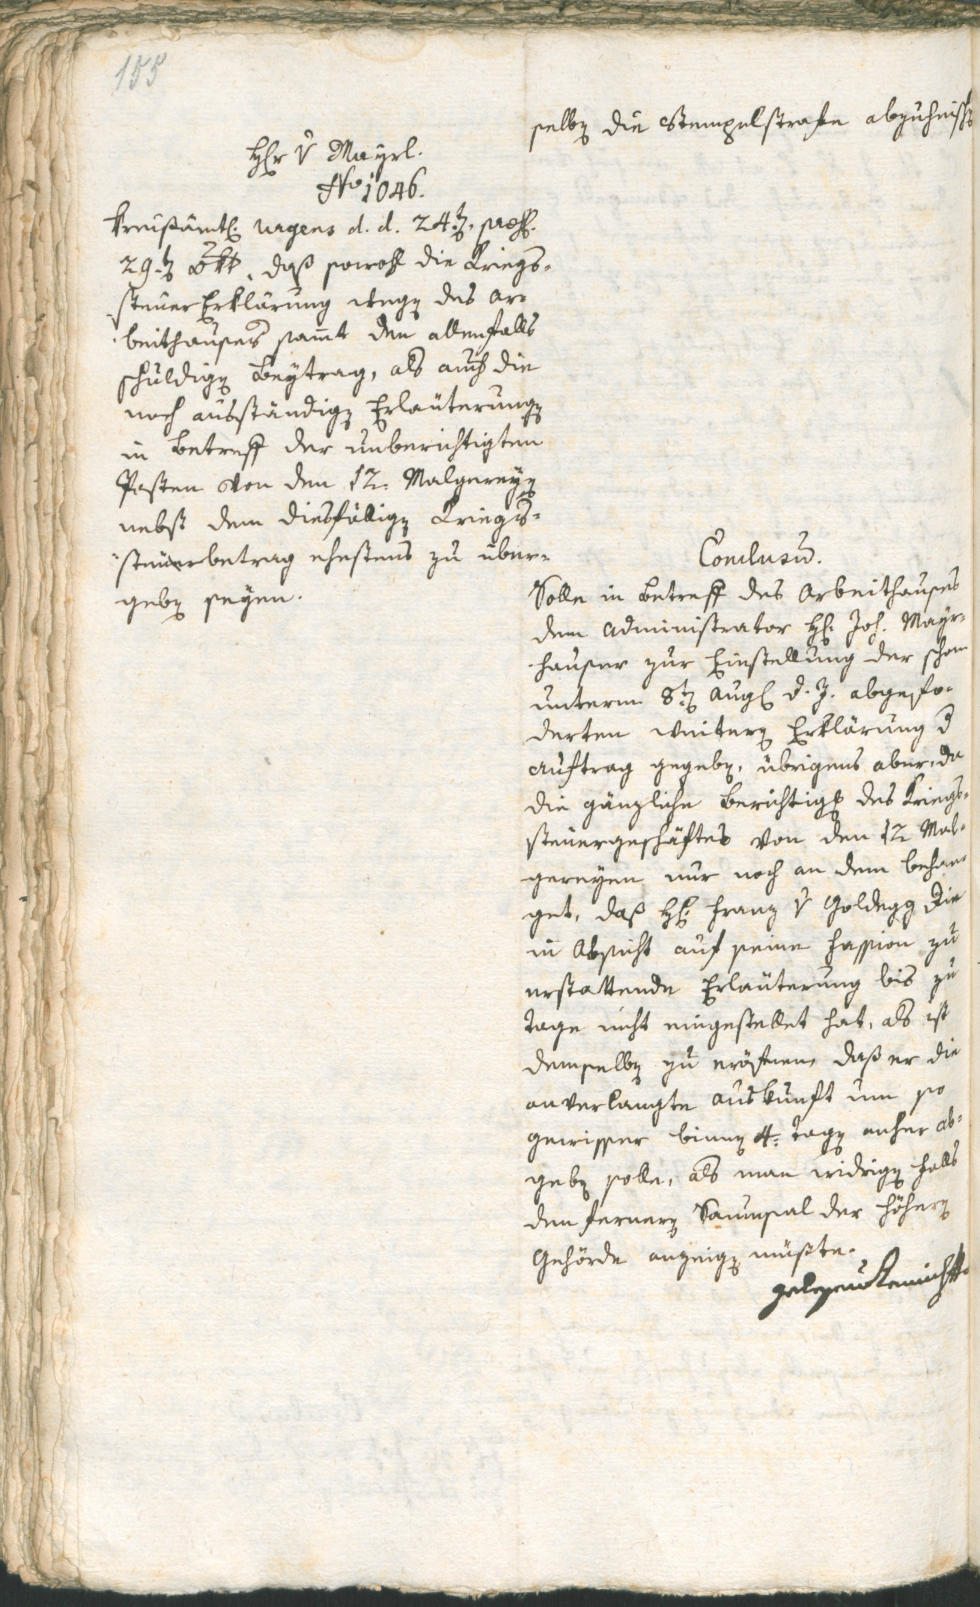 155
Hr v Mayrl.
No 1046.
Kreisämtl. urgens d. d. 24t. praes.
29t 8bb, daß sowohl die Kriegs-
steuer Erklärung wegen des Ar-
beithauses sammt den allenfalls
schuldigen Beytrag, als auch die
noch ausständigen Erläuterungen
in Betreff der unberichtigten
Posten von den 12. Malgereyen
nebst dem diesfälligen Kriegs-
steuerbetrag ehestens zu über-
geben seyen.
selben die Stempelstrafe abzuheischen
Conclusum.
Solle in Betreff des Arbeithauses
dem Administrator H. Joh. Mayr-
hauser zur Einstellung der schon
unterm 8ten Aug d. J. abgefo-
derten weitern Erklärung d
Auftrag gegeben, übrigens aber, da
die gänzliche Berichtigg des Kriegs-
steuergeschäftes von den 12 Mal-
gereyen nur noch an dem behan-
get, daß H. Franz v Goldegg die
in Absicht auf seine Fassion zu
erstattende Erläuterung bis zu
Tage nicht eingestellet hat, als ist
demselben zu eröfnen, daß er die
anverlangte Auskunft um so
gewisser binnen 4. Tagen anher ab-
geben solle, als man widrigen Falls
den fernern Saumsal der höhern
Behörde anzeigen müßte.